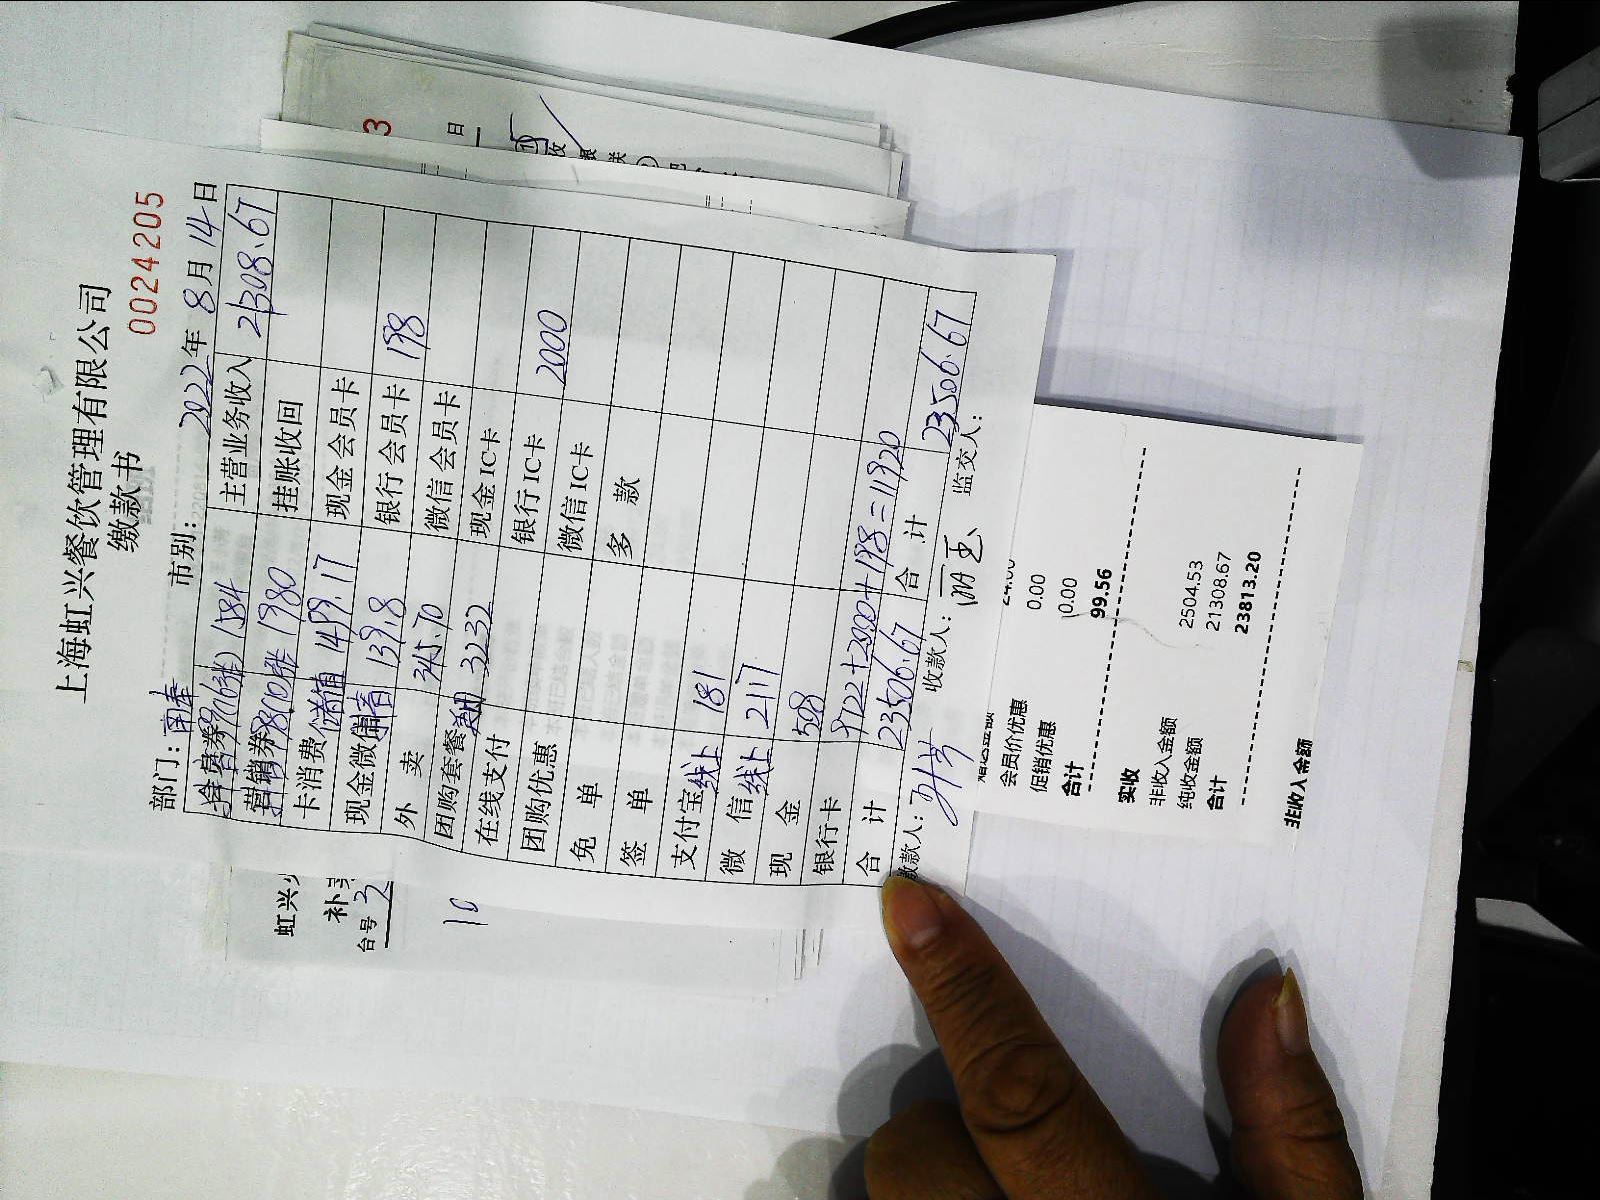 上海虹兴餐饮管理有限公司
缴款书
0024205
部门：南奉 市别： 2022年8月14日
1584 主营业务收入 21308.67
1980 挂账收回
卡消费 储值 1499.17 现金会员卡
现金微信 139.8 银行会员卡 198
外 卖 微信会员卡
团购套餐 3232 现金IC卡
在线支付 银行IC卡 2000
团购优惠 微信IC卡
免 单 多 款
签 单
支付宝 线上 181
微 信 线上 2117
现 金 508
银行卡 9722+2000+198=11920
合 计 23506.67 合 计 23506.67
缴款人： 收款人： 监交人：
会员价优惠 0.00
促销优惠 0.00
合计 99.56
实收
非收入金额 2504.53
纯收金额 21308.67
合计 23813.20
非收入金额
虹兴
补
台号 3
3
日